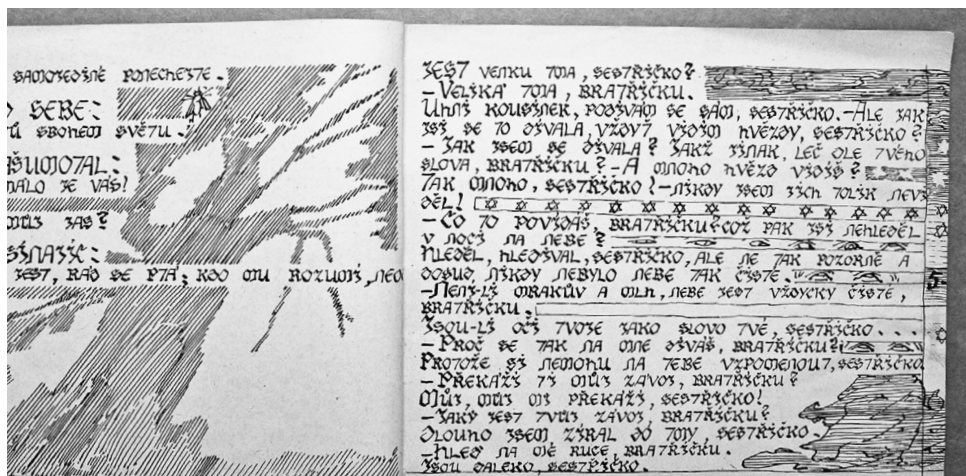 SAMOJEDINĚ PONECHEJTE.
SEBE:
SBOHEM SVĚTU.
AŠUMOTAL:
MÁLO JE VÁS!
MŮJ JAS?
JEST, RÁD SE PTÁ; KDO MU ROZUMÍ,
JEST VENKU TMA, SESTŘIČKO?
–VELIKÁ TMA, BRATŘÍČKU.
UHNI KOUSÍNEK, PODÍVÁM SE SÁM, SESTŘIČKO.–ALE JAK
JSI SE TO DÍVALA, VŽDYŤ VIDÍM HVĚZDY, SESTŘIČKO?
–JAK JSEM SE DÍVALA? JAKŽ JINAK, LEČ DLE TVÉHO
SLOVA, BRATŘÍČKU?–A MNOHO HVĚZD VIDÍŠ?
TAK MNOHO, SESTŘIČKO!–NIKDY JSEM JICH TOLIK NEVI
DĚL!
–CO TO POVÍDÁŠ, BRATŘÍČKU? COŽ PAK JSI NEHLEDĚL
V NOCI NA NEBE?
HLEDĚL, HLEDÍVAL, SESTŘIČKO, ALE NE TAK POZORNĚ A
DOSUD NIKDY NEBYLO NEBE TAK ČISTÉ.
–NENÍ-LI MRAKŮV A MLH, NEBE JEST VŽDYCKY ČISTÉ,
BRATŘÍČKU.
JSOU-LI OČI TVOJE JAKO SLOVO TVÉ, SESTŘIČKO...
–PROČ SE TAK NA MNE DÍVÁŠ, BRATŘÍČKU?
PROTOŽE SI NEMOHU NA TEBE VZPOMENOUT, SESTŘIČKO.
–PŘEKÁŽÍ TI MŮJ ZÁVOJ, BRATŘÍČKU?
MŮJ, MŮJ MI PŘEKÁŽÍ, SESTŘIČKO!
–JAKÝ JEST TVŮJ ZÁVOJ, BRATŘÍČKU?
DLOUHO JSEM ZÍRAL DO TMY, SESTŘIČKO.
–HLEĎ NA MÉ RUCE, BRATŘÍČKU.
JSOU DALEKO, SESTŘIČKO.
5-